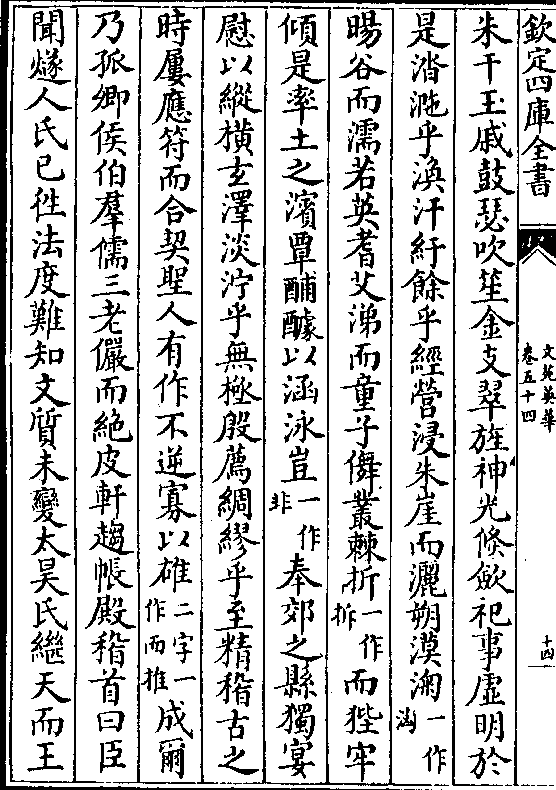 欽定四庫全書
文苑英華
卷五十四
十四
朱干玉戚鼓瑟吹笙金支翠旌神光倐歘祀事虛明於
是涾沲乎渙汗紆餘乎經營浸朱崖而灑朔漠洶一作㳹
暘谷而濡若英耆艾涕而童子儛叢棘折一作拆而狴牢
傾是率土之濱覃酺醵以涵泳豈一作非奉郊之縣獨宴
慰以縱橫玄澤淡泞乎無極殷薦綢繆乎至精稽古之
時屢應符而合契聖人有作不逆寡以雄二字一作而推成爾
乃孤卿侯伯羣儒三老儼而絶皮軒趨帳殿稽首曰臣
聞燧人氏已徃法度難知文質未變太昊氏繼天而王